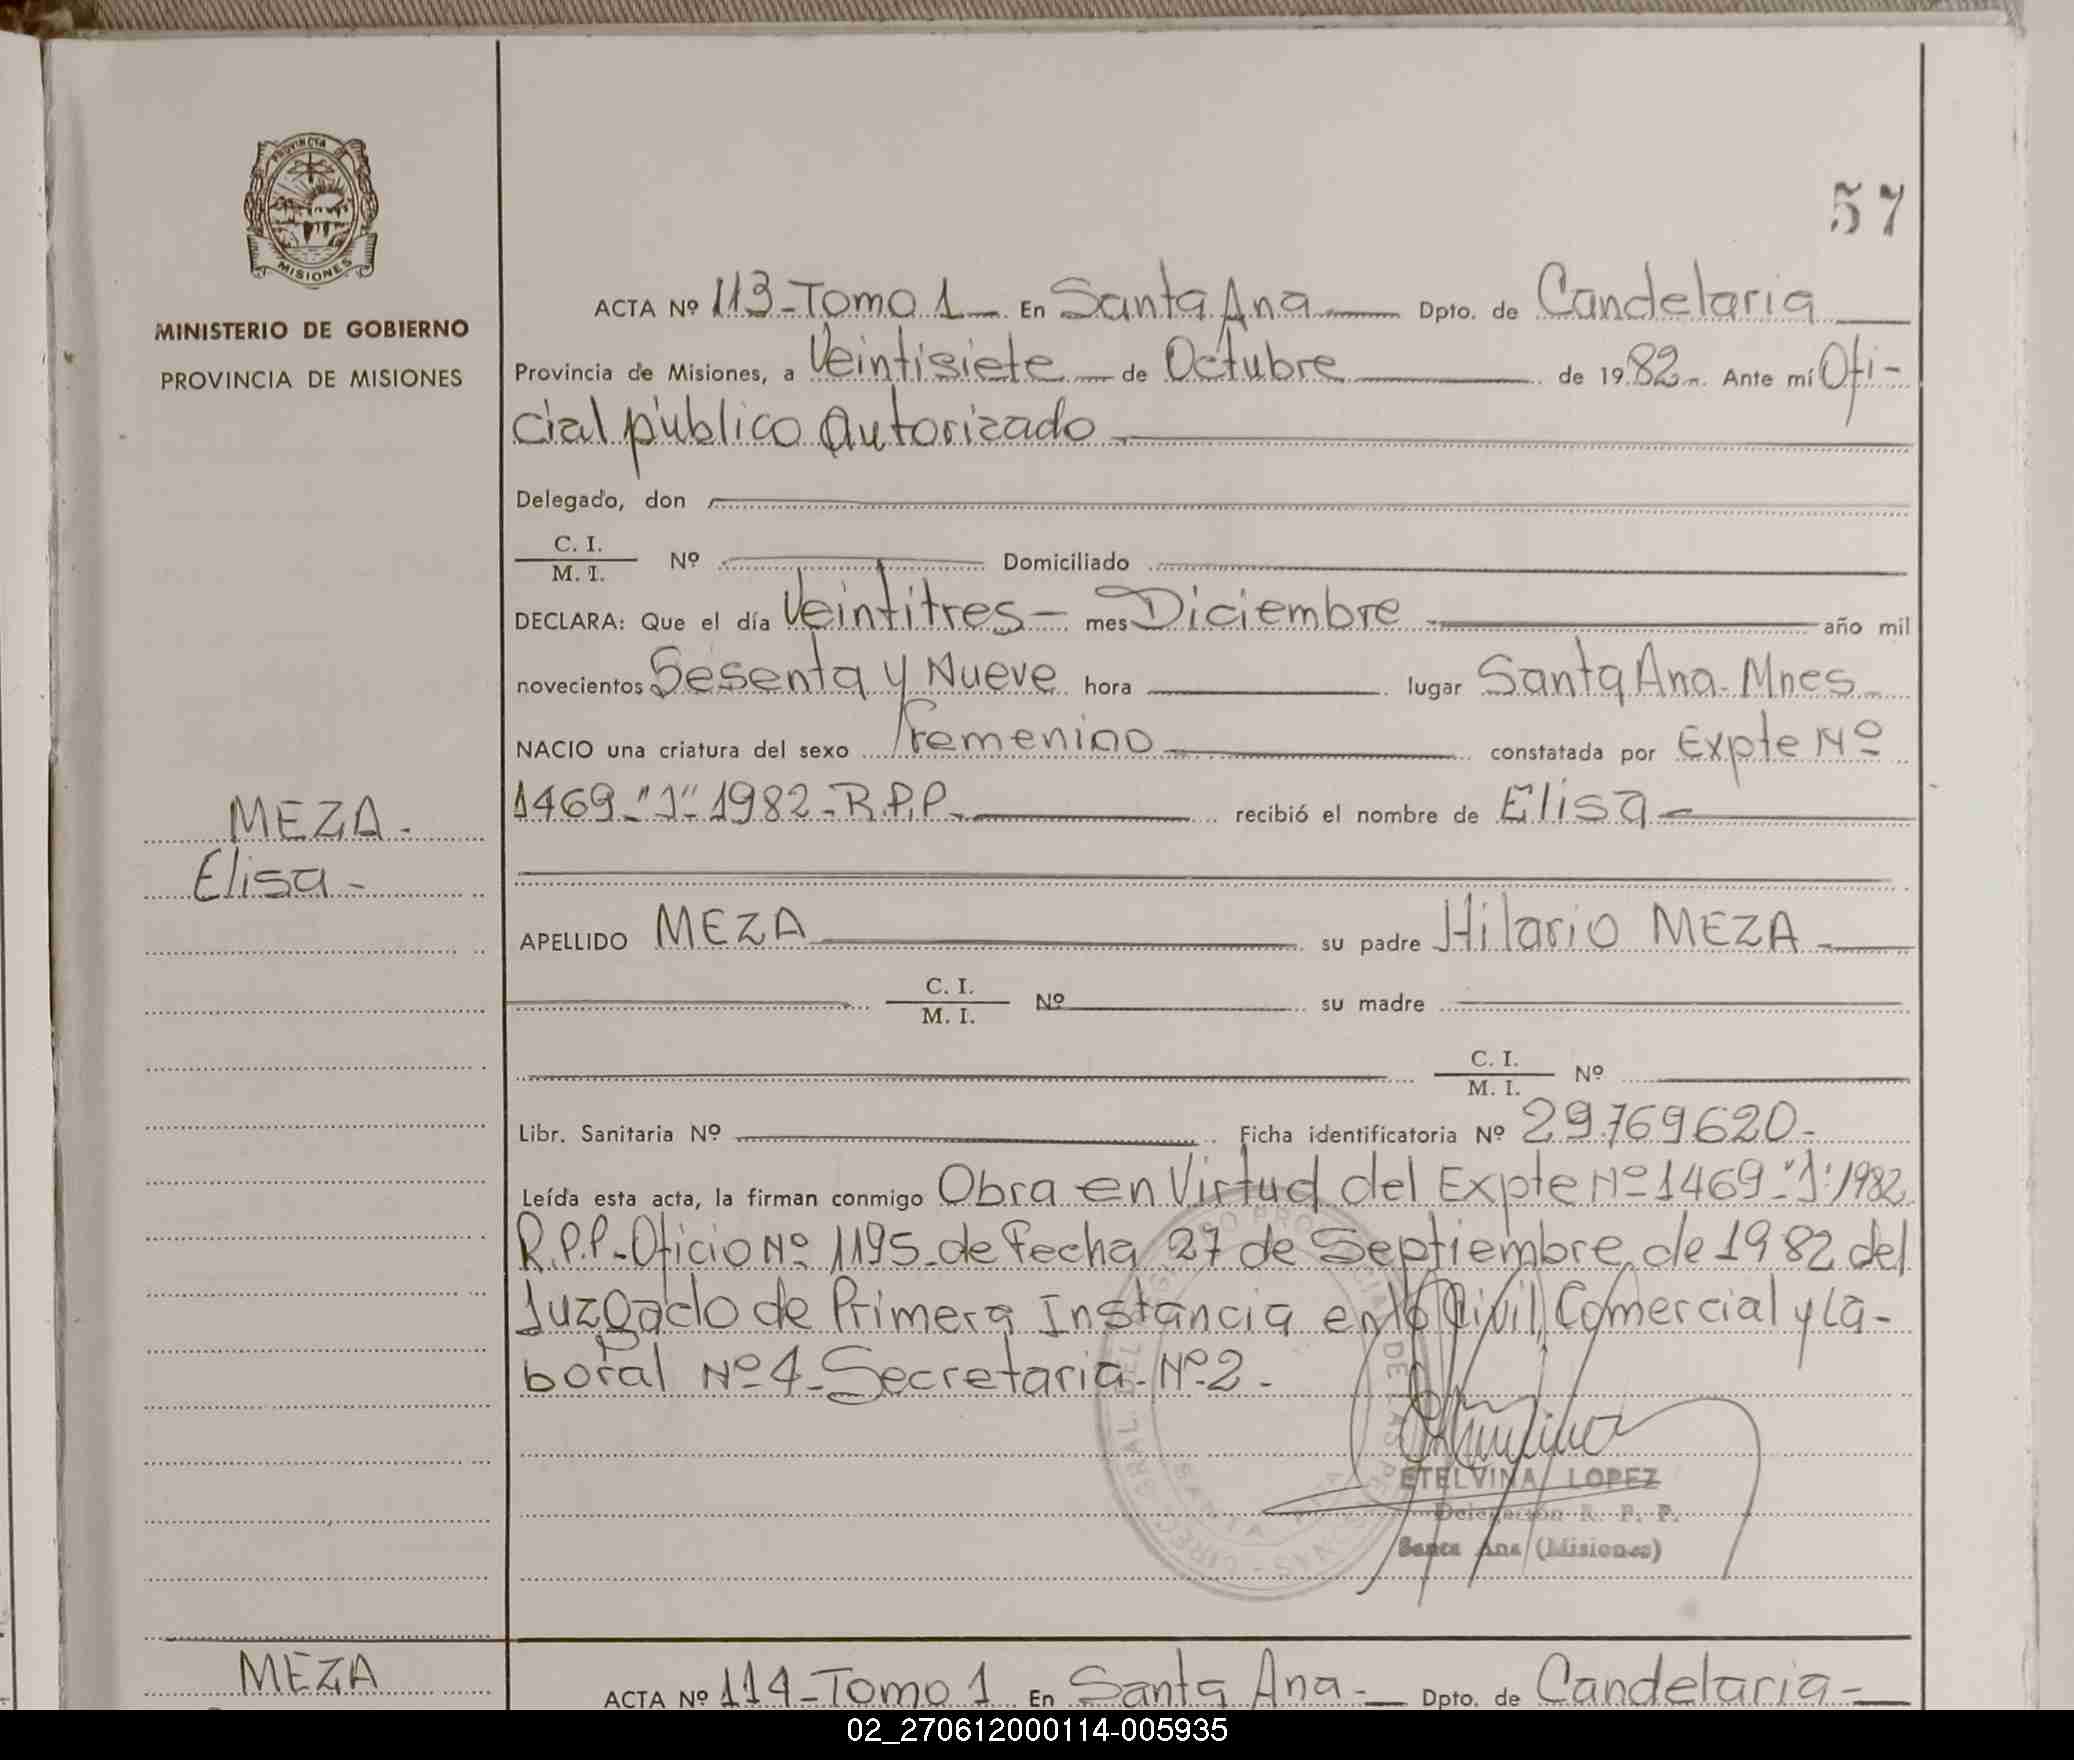 PROVINCIA
MISIONES
MINISTERIO DE GOBIERNO
PROVINCIA DE MISIONES
57
ACTA Nº 113-Tomo 1- En Santa Ana Dpto. de Candelaria
Provincia de Misiones, a Veintisiete de Octubre de 1982.- Ante mí Ofi-
cial público Autorizado
Delegado, don
C. I.
M. I. Nº Domiciliado
DECLARA: Que el día Veintitres- mes Diciembre año mil
novecientos Sesenta y Nueve hora lugar Santa Ana-Mnes
NACIO una criatura del sexo Femenino constatada por Expte Nº
1469-"J"-1982-R.P.P. recibió el nombre de Elisa-
MEZA-
Elisa-
APELLIDO MEZA su padre Hilario MEZA-
C. I.
M. I. Nº su madre
C. I.
M. I. Nº
Libr. Sanitaria Nº Ficha identificatoria Nº 29.769620-
Leída esta acta, la firman conmigo Obra en Virtud del Expte Nº 1469-"J"-1982
R.P.P.-Oficio Nº 1195-de Fecha 27 de Septiembre de 1982 del
Juzgado de Primera Instancia en lo Civil, Comercial y La-
boral Nº 4-Secretaria-Nº-2-
ETELVINA LOPEZ
Delegación R. P. P.
Santa Ana (Misiones)
MEZA
ACTA Nº 114-Tomo 1 En Santa Ana- Dpto. de Candelaria-
02_270612000114-005935